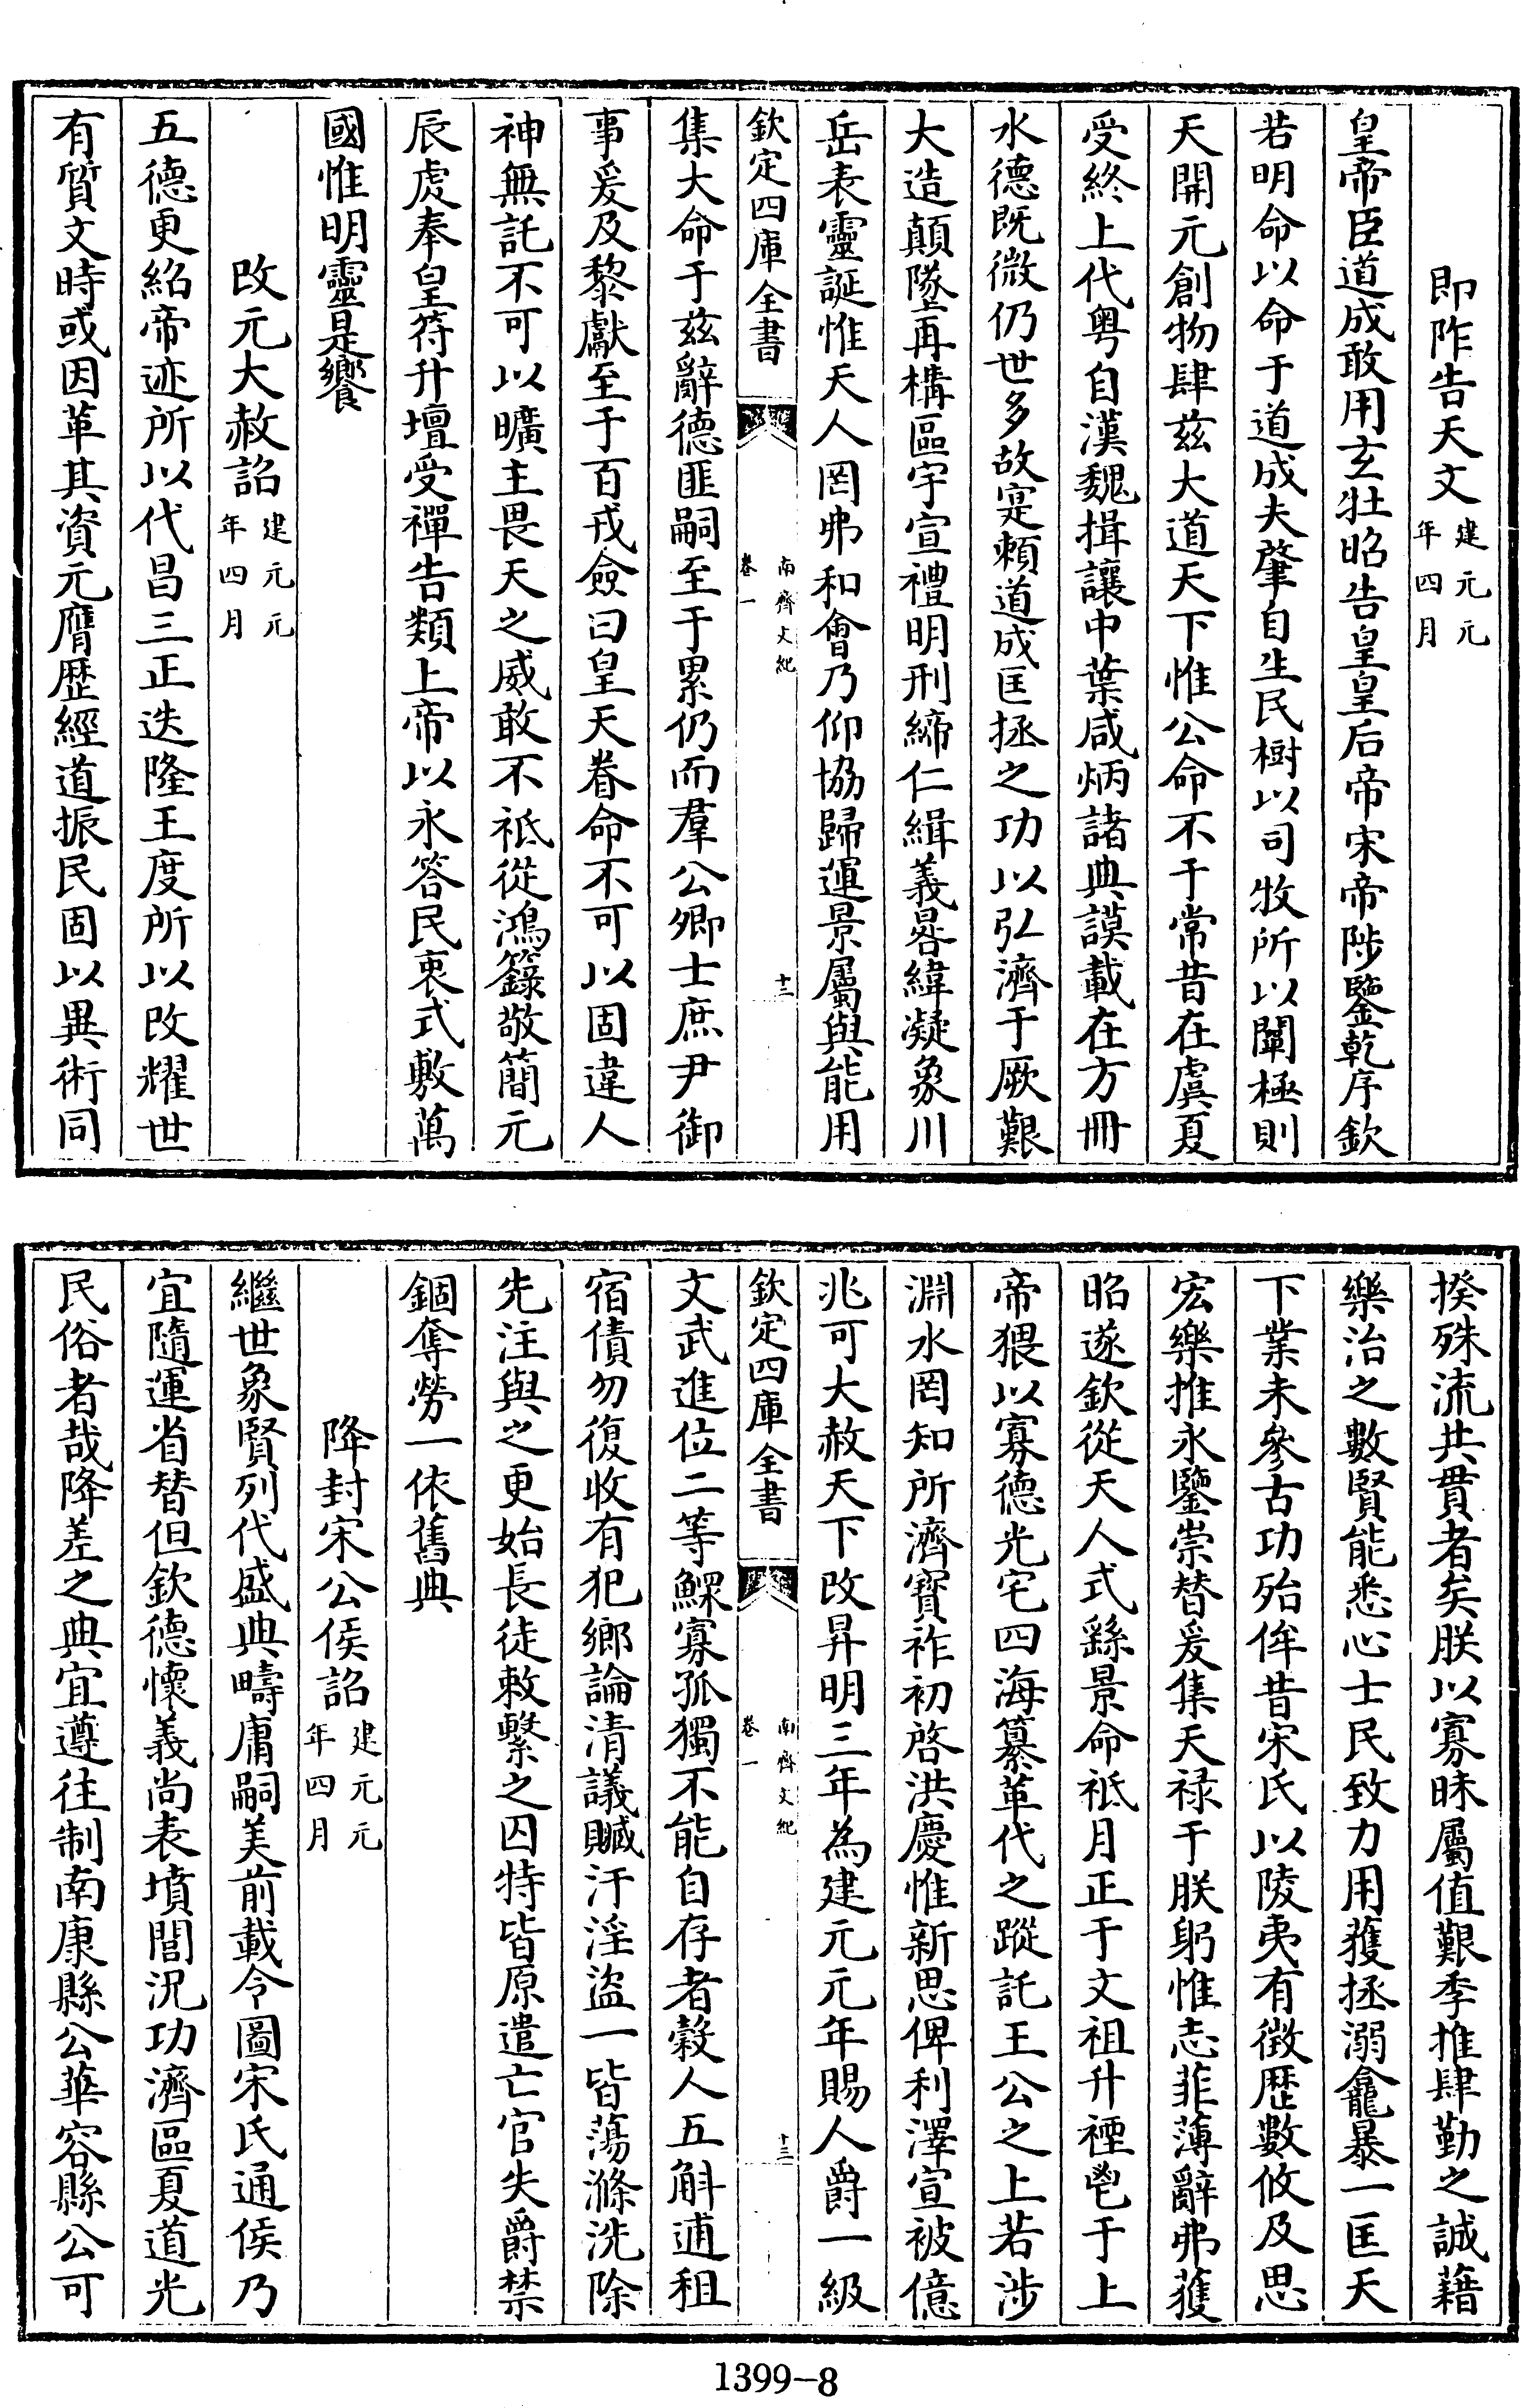 即阼告天文建元元年四月
皇帝臣道成敢用玄牡昭告皇皇后帝宋帝陟鑒乾序欽
若明命以命于道成夫肇自生民樹以司牧所以闡極則
天開元創物肆兹大道天下惟公命不于常昔在虞夏
受終上代粤自漢魏揖讓中葉咸炳諸典謨載在方冊
水德既微仍世多故寔賴道成匡拯之功以弘濟于厥艱
大造顛墜再構區宇宣禮明刑締仁緝義晷緯凝象川
岳表靈誕惟天人罔弗和會乃仰協歸運景屬與能用
欽定四庫全書
南齊文紀
卷一
十二
集大命于兹辭德匪嗣至于累仍而羣公卿士庶尹御
事爰及黎獻至于百戎僉曰皇天眷命不可以固違人
神無託不可以曠主畏天之威敢不祗從鴻籙敬簡元
辰虔奉皇符升壇受禪告類上帝以永答民衷式敷萬
國惟明靈是饗
改元大赦詔建元元年四月
五德更紹帝迹所以代昌三正迭隆王度所以改耀世
有質文時或因革其資元膺歷經道振民固以異術同
揆殊流共貫者矣朕以寡昧屬值艱季推肆勤之誠藉
樂治之數賢能悉心士民致力用獲拯溺龕暴一匡天
下業未參古功殆侔昔宋氏以陵夷有徵歷數攸及思
宏樂推永鑒崇替爰集天禄于朕躬惟志菲薄辭弗獲
昭遂欽從天人式繇景命祗月正于文祖升禋鬯于上
帝猥以寡德光宅四海纂革代之蹤託王公之上若涉
淵水罔知所濟寳祚初啓洪慶惟新思俾利澤宣被億
兆可大赦天下改昇明三年為建元元年賜人爵一級
欽定四庫全書
南齊文紀
卷一
十三
文武進位二等鰥寡孤獨不能自存者穀人五斛逋租
宿債勿復收有犯鄉論清議贓汙淫盜一皆蕩滌洗除
先注與之更始長徒敕繫之囚特皆原遣亡官失爵禁
錮奪勞一依舊典
降封宋公侯詔建元元年四月
繼世象賢列代盛典疇庸嗣美前載令圖宋氏通侯乃
宜隨運省替但欽德懷義尚表墳閭況功濟區夏道光
民俗者哉降差之典宜遵往制南康縣公華容縣公可
1399-8